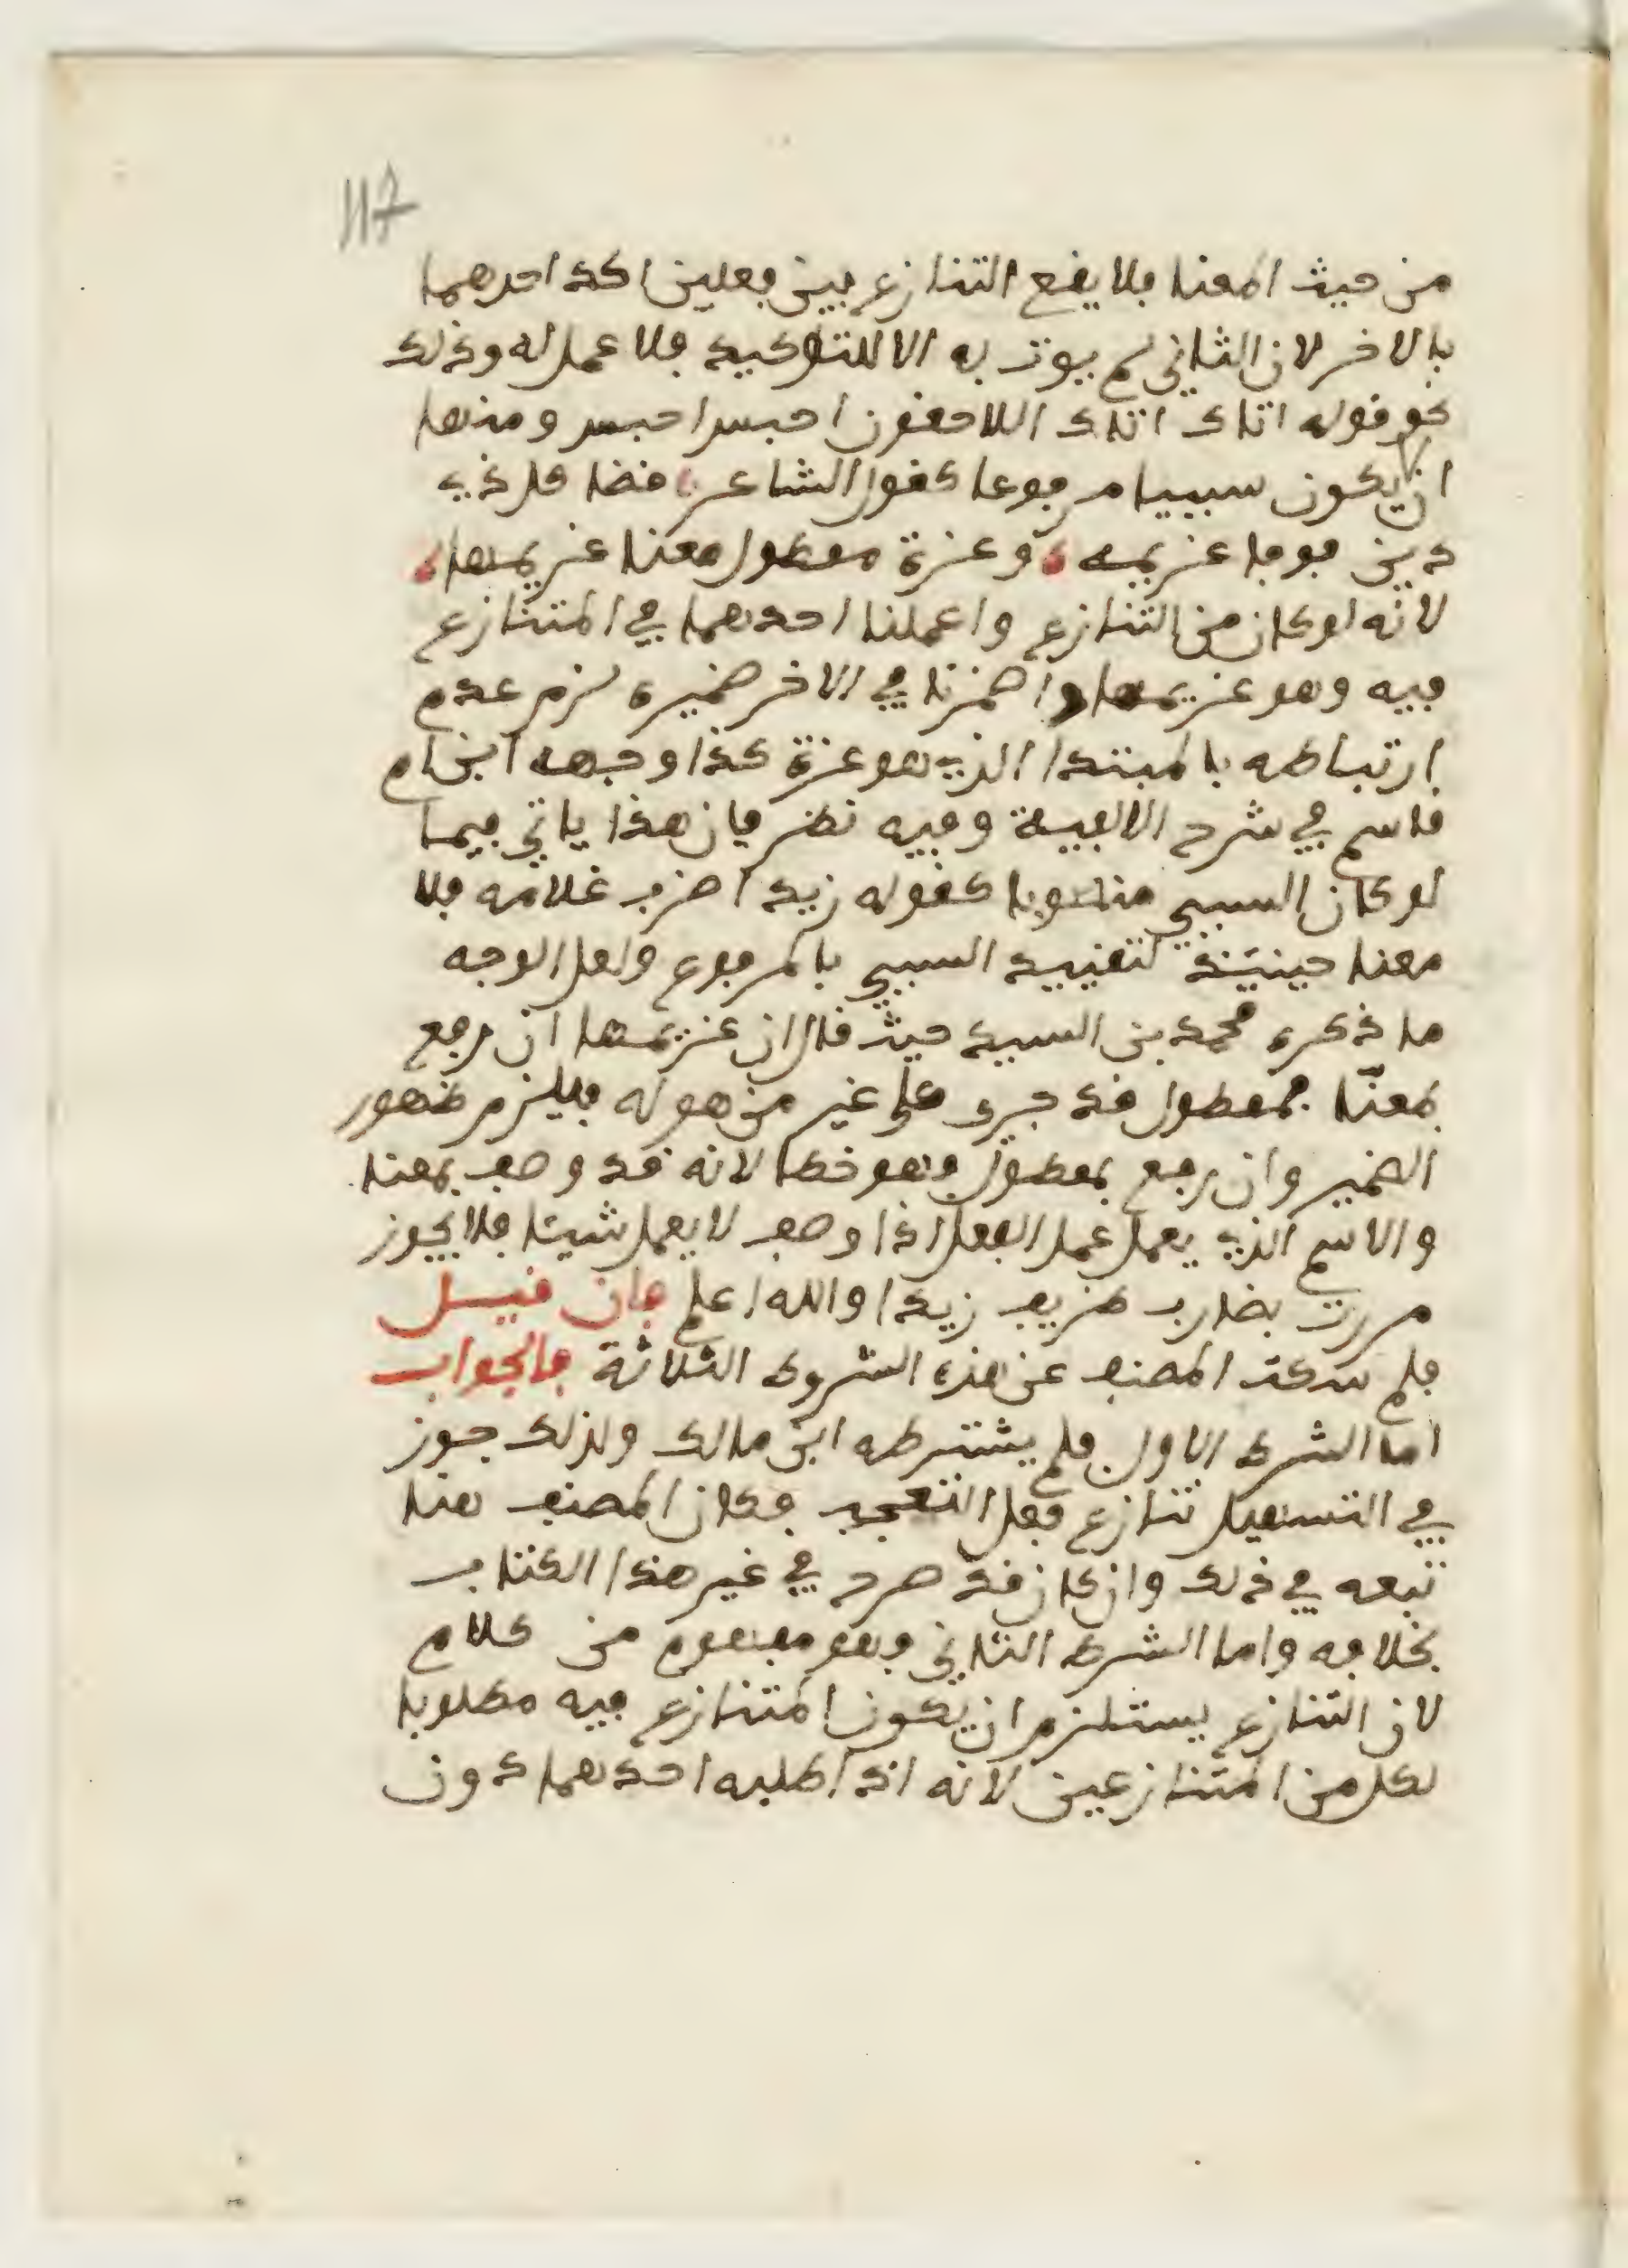 117
من حيث المعنا فلا يقع التنازع بين فعلين اكد احدهما
بالاخر لان الثاني لم يوت به الا للتوكيد فلا عمل له وذلك
نحو قوله اتاك اتاك اللاحقون احبس احبس ومنها
ان يكون سببيا مرفوعا كقول الشاعر قضا كل ذي
دين فوفا غريمه وعزة ممطول معنا غريمها
لانه لو كان من التنازع واعملنا احدهما في المتنازع
فيه وهو غريمها واضمرنا في الاخر ضميره لزم عدم
ارتباطه بالمبتدا الذي هو عزة كذا وجهه ابن ام
قاسم في شرح الالفية وفيه نظر فان هذا ياتي فيما
لو كان السببي منصوبا كقوله زيد اضرب غلامه فلا
معنا حينئذ لتقييد السببي بالمرفوع ولعل الوجه
ما ذكره محمد بن السيد حيث قال ان غريمها ان رفع
بمعنّا فممطول قد جرى على غير من هو له فيلزم ظهور
الضمير وان رفع بممطول فهو خطا لانه قد وصف بمعنا
والاسم الذي يعمل عمل الفعل اذا وصف لا يعمل شيئا فلا يجوز
مررت بضارب ظريف زيدا والله اعلم فان قيل
فلم سكت المصنف عن هذه الشروط الثلاثة فالجواب
اما الشرط الاول فلم يشترطه ابن مالك ولذلك جوز
في التسهيل تنازع فعل التعجب فكان المصنف هنا
تبعه في ذلك وان كان قد صرح في غير هذا الكتاب
بخلافه واما الشرط الثاني فهو مفهوم من كلام
لان التنازع يستلزم ان يكون المتنازع فيه مطلوبا
لكل من المتنازعين لانه اذا طلبه احدهما دون